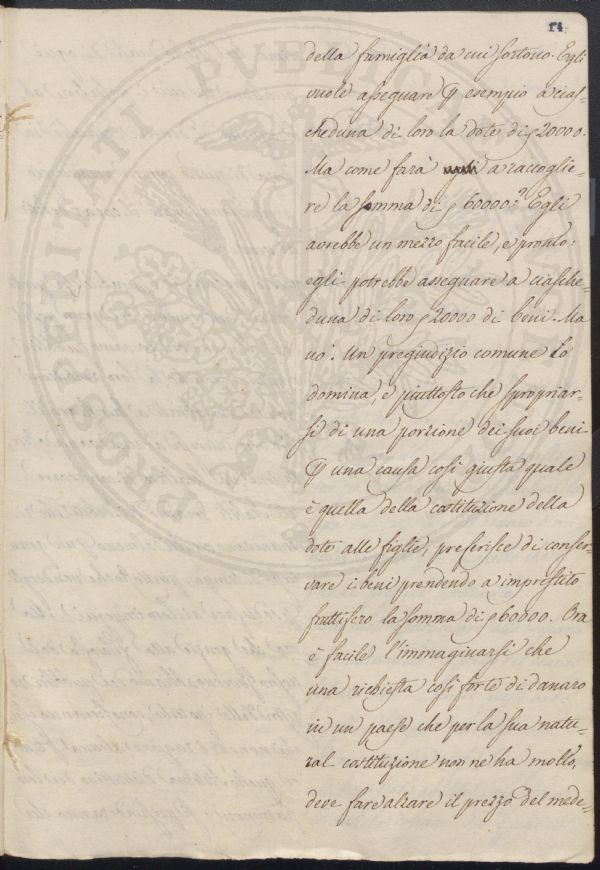 14
della famiglia da cui sortono. Egli
vuole assegnare p esempio a cias-
cheduna di loro la dote di 20000.
Ma come farà a raccoglie-
re la somma di 60000? Egli
avrebbe un mezzo facile, e pronto:
egli potrebbe assegnare a ciasche-
duna di loro 20000 di beni. Ma
nò. Un pregiudizio comune lo
domina, e piuttosto che spropriar-
si di una porzione dei suoi beni
p una causa così giusta quale
è quella della costituzione della
dote alle figlie, preferisce di conser-
vare i beni prendendo a imprestito
fruttifero la somma di 60000. Ora
è facile l'immaginarsi che
una richiesta così forte di danaro
in un paese che per la sua natu-
ral costituzione non ne ha molto,
deve fare alzare il prezzo del mede-
PROSPERITATI PUBLICAE